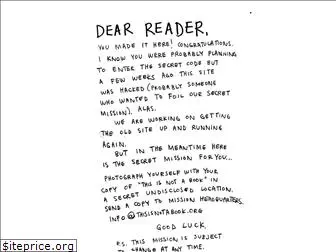 DEAR READER,
YOU MADE IT HERE! CONGRATULATIONS.
I KNOW YOU WERE PROBABLY PLANNING
TO ENTER THE SECRET CODE BUT
A FEW WEEKS AGO THIS SITE
WAS HACKED (PROBABLY SOMEONE
WHO WANTED TO FOIL OUR SECRET
MISSION), ALAS.
WE ARE WORKING ON GETTING
THE OLD SITE UP AND RUNNING
AGAIN.
BUT IN THE MEANTIME HERE
IS THE SECRET MISSION FOR YOU...
PHOTOGRAPH YOURSELF WITH YOUR
COPY OF "THIS IS NOT A BOOK" IN
A SECRET UNDISCLOSED LOCATION.
SEND A COPY TO MISSION HEADQUARTERS.
INFO@THISISNOTABOOK.ORG
GOOD LUCK,
P.S. THIS MISSION IS SUBJECT
TO CHANGE AT ANY TIME.